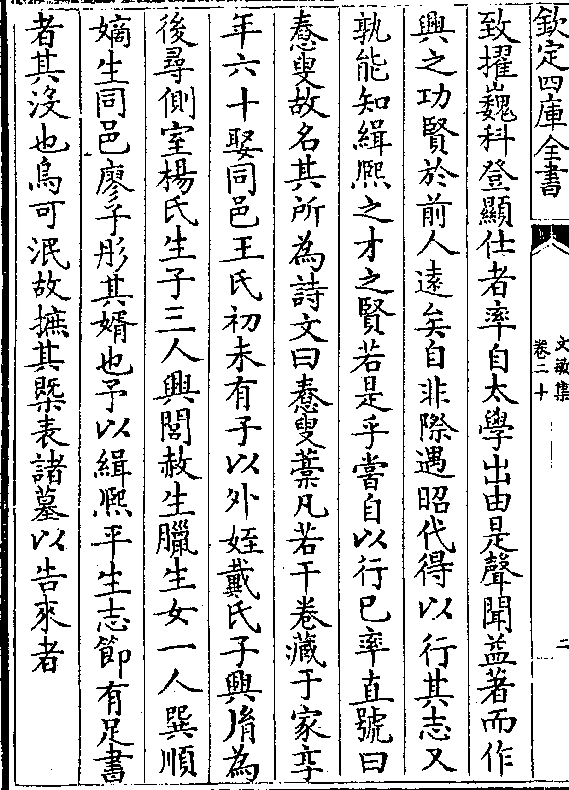 欽定四庫全書
文敏集
卷二十
二
致擢巍科登顯仕者率自太學出由是聲聞益著而作
興之功賢於前人遠矣自非際遇昭代得以行其志又
孰能知緝熈之才之賢若是乎嘗自以行已率直號曰
惷叟故名其所為詩文曰惷叟藁凡若干卷藏于家卒
年六十娶同邑王氏初未有子以外姪戴氏子興脩為
後尋側室楊氏生子三人興閭赦生臘生女一人巽順
嫡生同邑廖子彤其婿也予以緝熈平生志節有足書
者其沒也烏可泯故摭其槩表諸墓以告來者